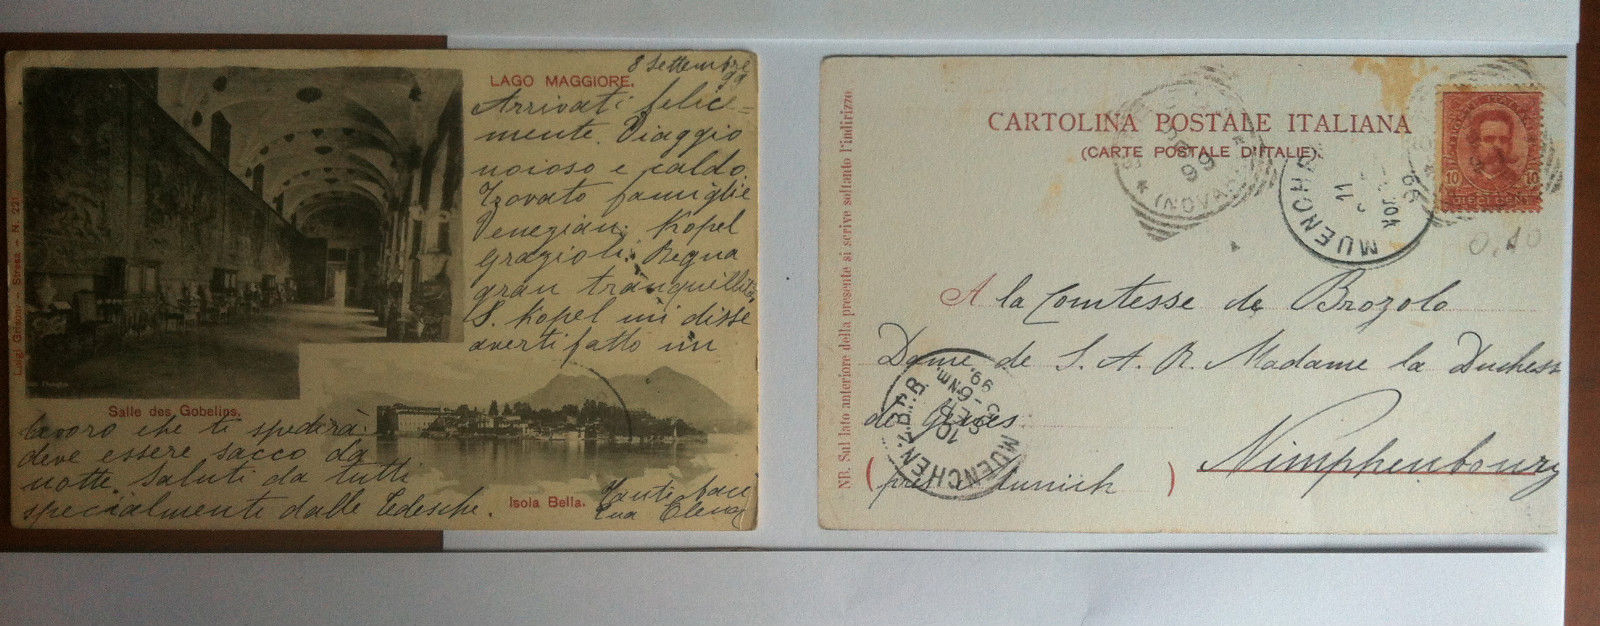 8 Settembre
99
LAGO MAGGIORE.
Arrivati felice=
mente. Viaggio
noioso e caldo.
Trovato famiglie
Venezian: Kopel
Grazioli: Regna
gran tranquillità
S. Kopel mi disse
averti fatto un
lavoro che ti spedirà:
deve essere sacco da
notte. Saluti da tutti
specialmente dalle Tedesche.
Tanti baci
tua Elena
Salle des Gobelins.
Isola Bella.
Luigi Grisoni - Stresa - N. 221
CARTOLINA POSTALE ITALIANA
(CARTE POSTALE D'ITALIE).
NB. Sul lato anteriore della presente si scrive soltanto l'indirizzo
(NOVARA)
99
MUENCHEN
11
99
10
DIECI CENT
10
0,10
A la Comtesse de Brozolo
Dame de S. A. R. Madame la Duchess
de Gênes
Nimphenbourg
(près Munich)
MUENCHEN
10 SEP
5-6 Nm.
99